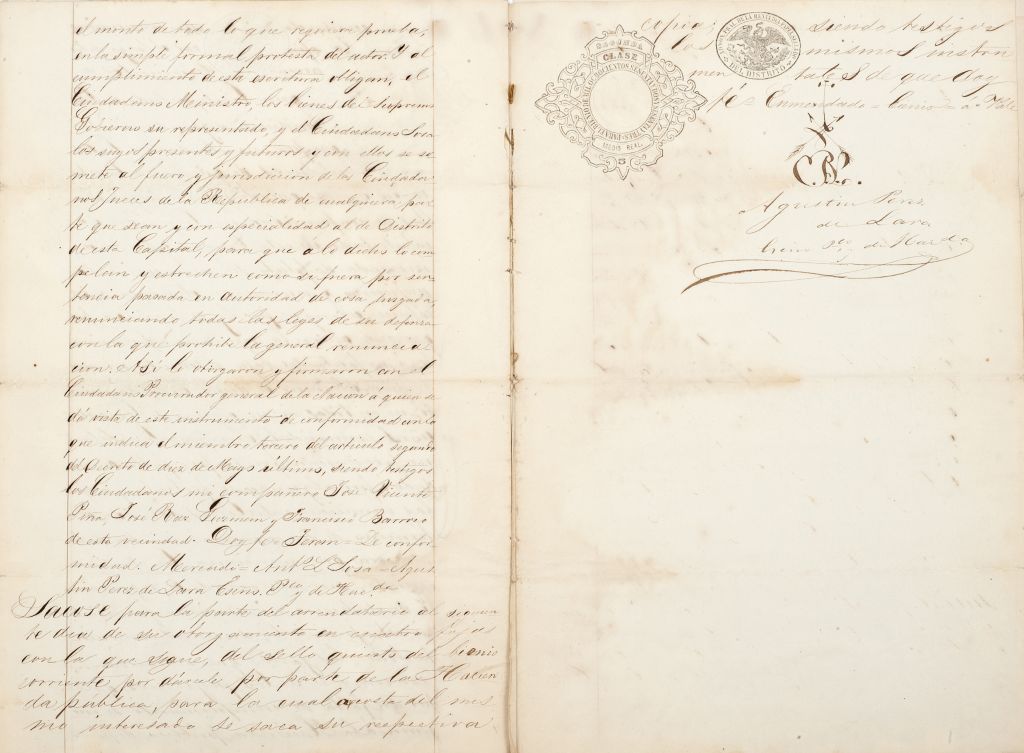 el monto de todo lo que requiera prueba,
en la simple formal protesta del actor. Y al
cumplimiento de esta escritura obligan, el
Ciudadano Ministro, los bienes del Supremo
Gobierno su representado, y el Ciudadano Sosa
los suyos presentes y futuros y con ellos se so
mete al fuero y jurisdiccion de los Ciudada
nos Jueces de la Republica de cualquiera par
te que sean, y con especialidad al de Distrito
de esta Capital, para que a lo dicho lo com
pelan y estrechen como si fuera por sen
tencia pasada en autoridad de cosa juzgada,
renunciando todas las leyes de su defensa
con la que prohibe la general renuncia
cion. Así lo otorgaron y firmaron con el
Ciudadano Procurador general de la Nacion á quien se
dá vista de este instrumento de conformidad con lo
que indica el miembro tercero del articulo segundo
del Decreto de diez de Mayo último, siendo testigos
los Ciudadanos mi compañero José Vicente
Piña, José Ruz Guzman y Francisco Barrio
de esta vecindad. Doy fe = Teran = De confor
midad. Mercado = Antº L Sosa = Agus
tin Perez de Lara Esno. Pco. y de Hac.da
Sacose, para la parte del arrendatario al siguien
te dia de su otorgamiento en cuatro fojas
con la que sigue, del sello quinto del bienio
corriente por dársele por parte de la Hacien
da publica, para la cual á costa del mis
mo interesado se saca su respectiva
copia; siendo testigos
los mismos instru
mentales de que doy
fé. Enmendado =
SEGUNDA
CLASE
MEDIO REAL.
DEL DISTRITO
Agustin Perez
de Lara
Esno. pco. y de Hac.da